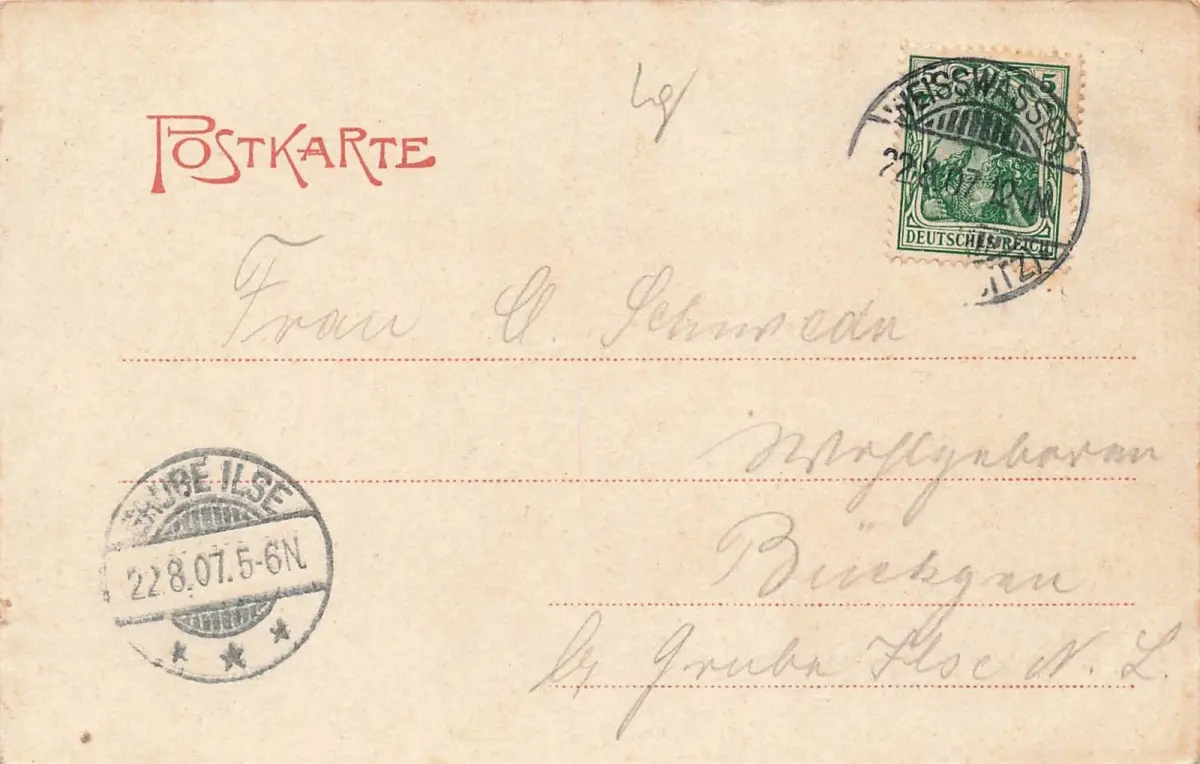 POSTKARTE
5
WEISSWASSER
22.8.07.12-1N
DEUTSCHES REICH
Frau A. Schweda
Wohlgeboren
GRUBE ILSE
22.8.07.5-6N.
Bückgen
Grube Ilse N. L.